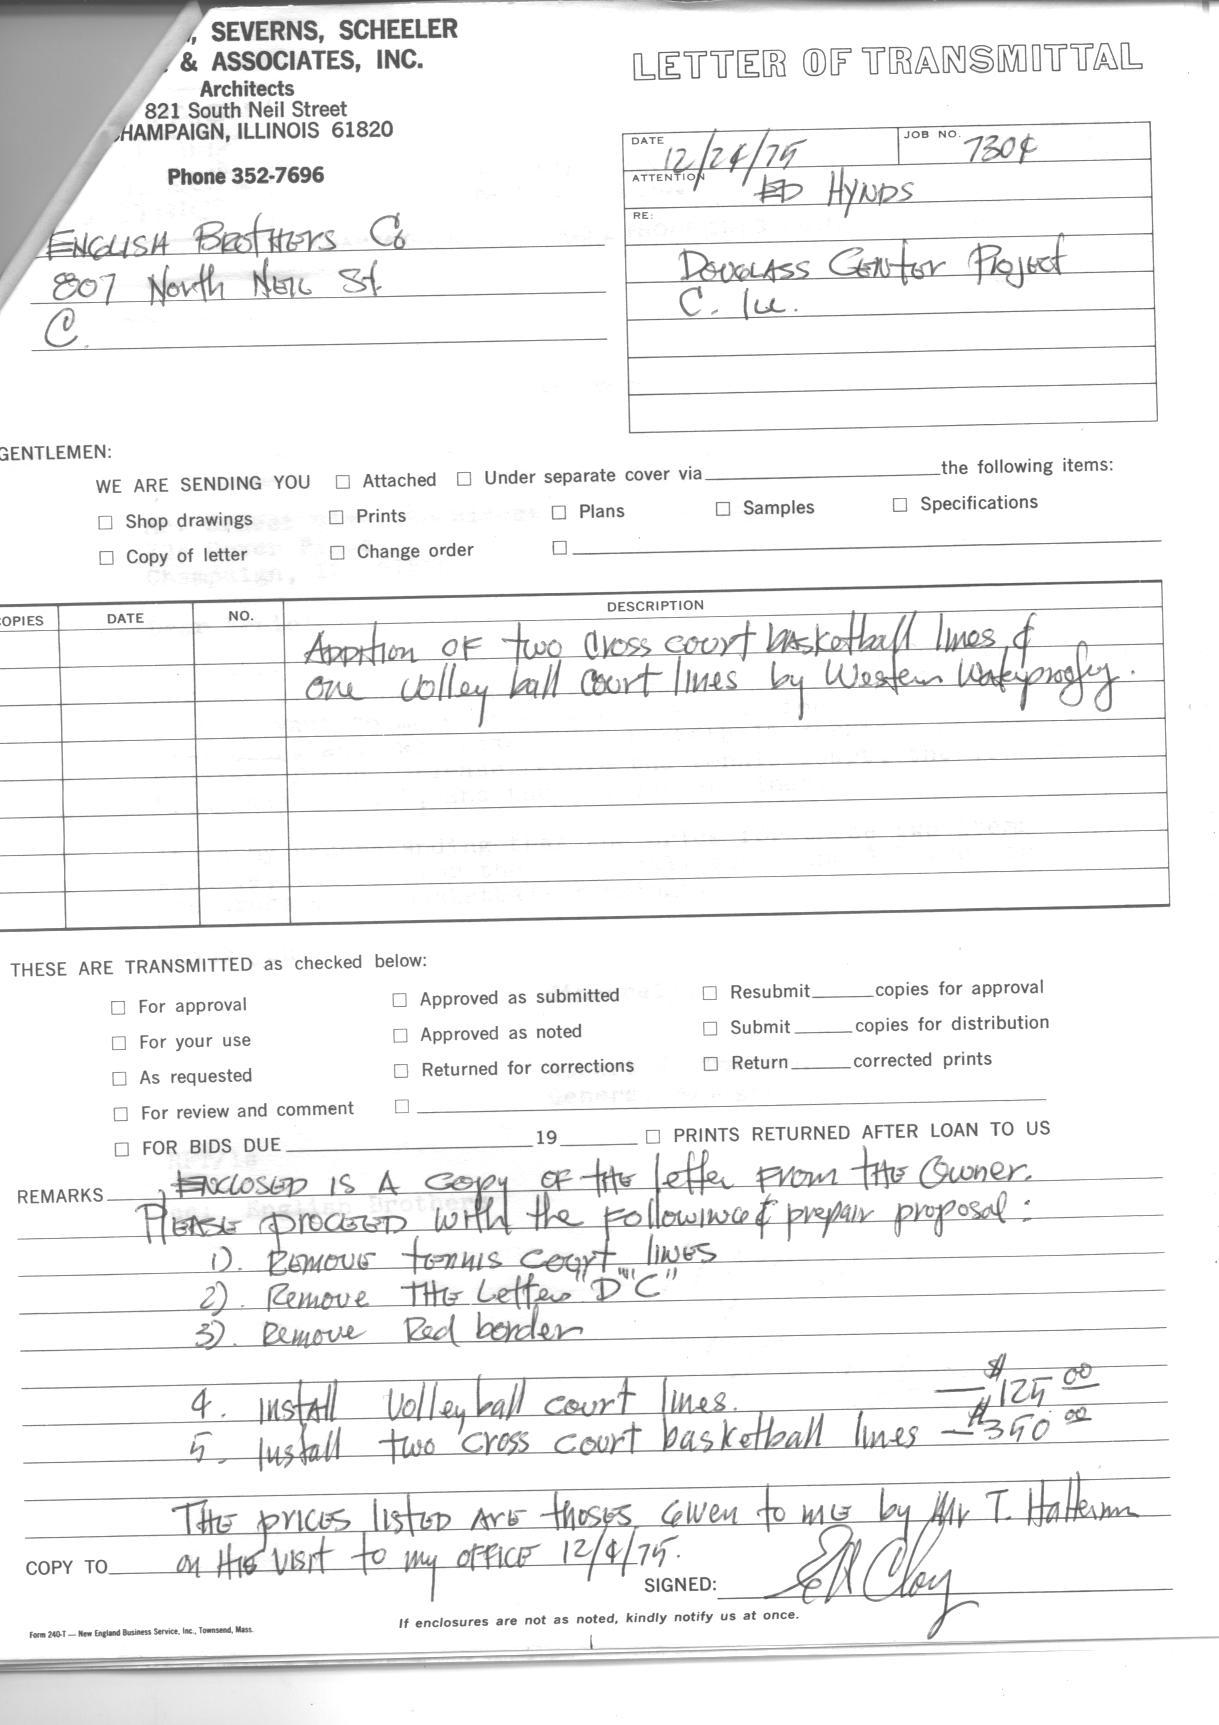 , SEVERNS, SCHEELER
& ASSOCIATES, INC.
Architects
821 South Neil Street
HAMPAIGN, ILLINOIS 61820
Phone 352-7696
LETTER OF TRANSMITTAL
DATE 12/24/75
JOB NO. 730¢
ATTENTION ED HYNDS
RE:
DOUGLASS CENTER PROJECT
C. ILL.
ENGLISH BROTHERS Co
807 North NEIL St.
C.
GENTLEMEN:
WE ARE SENDING YOU □ Attached □ Under separate cover via the following items:
□ Shop drawings □ Prints □ Plans □ Samples □ Specifications
□ Copy of letter □ Change order □
OPIES DATE NO. DESCRIPTION
Addition OF two Cross court basketball lines &
one volley ball court lines by Western Waterproofing.
THESE ARE TRANSMITTED as checked below:
□ For approval □ Approved as submitted □ Resubmit copies for approval
□ For your use □ Approved as noted □ Submit copies for distribution
□ As requested □ Returned for corrections □ Return corrected prints
□ For review and comment □
□ FOR BIDS DUE 19 □ PRINTS RETURNED AFTER LOAN TO US
REMARKS ENCLOSED IS A COPY OF THE letter FROM THE OWNER.
PLEASE PROCEED WITH the FOLLOWING & prepair proposal:
1). REMOVE tennis court lines
2). Remove THE Letters "D" "C"
3). Remove Red border
4. INSTALL Volleyball court lines. — $125 00
5. Install two cross court basketball lines — $350 00
THE prices listed ARE thoses Given to me by Mr T. Halterman
COPY TO on HIS VISIT to my OFFICE 12/4/75.
SIGNED:
If enclosures are not as noted, kindly notify us at once.
Form 240-T — New England Business Service, Inc., Townsend, Mass.